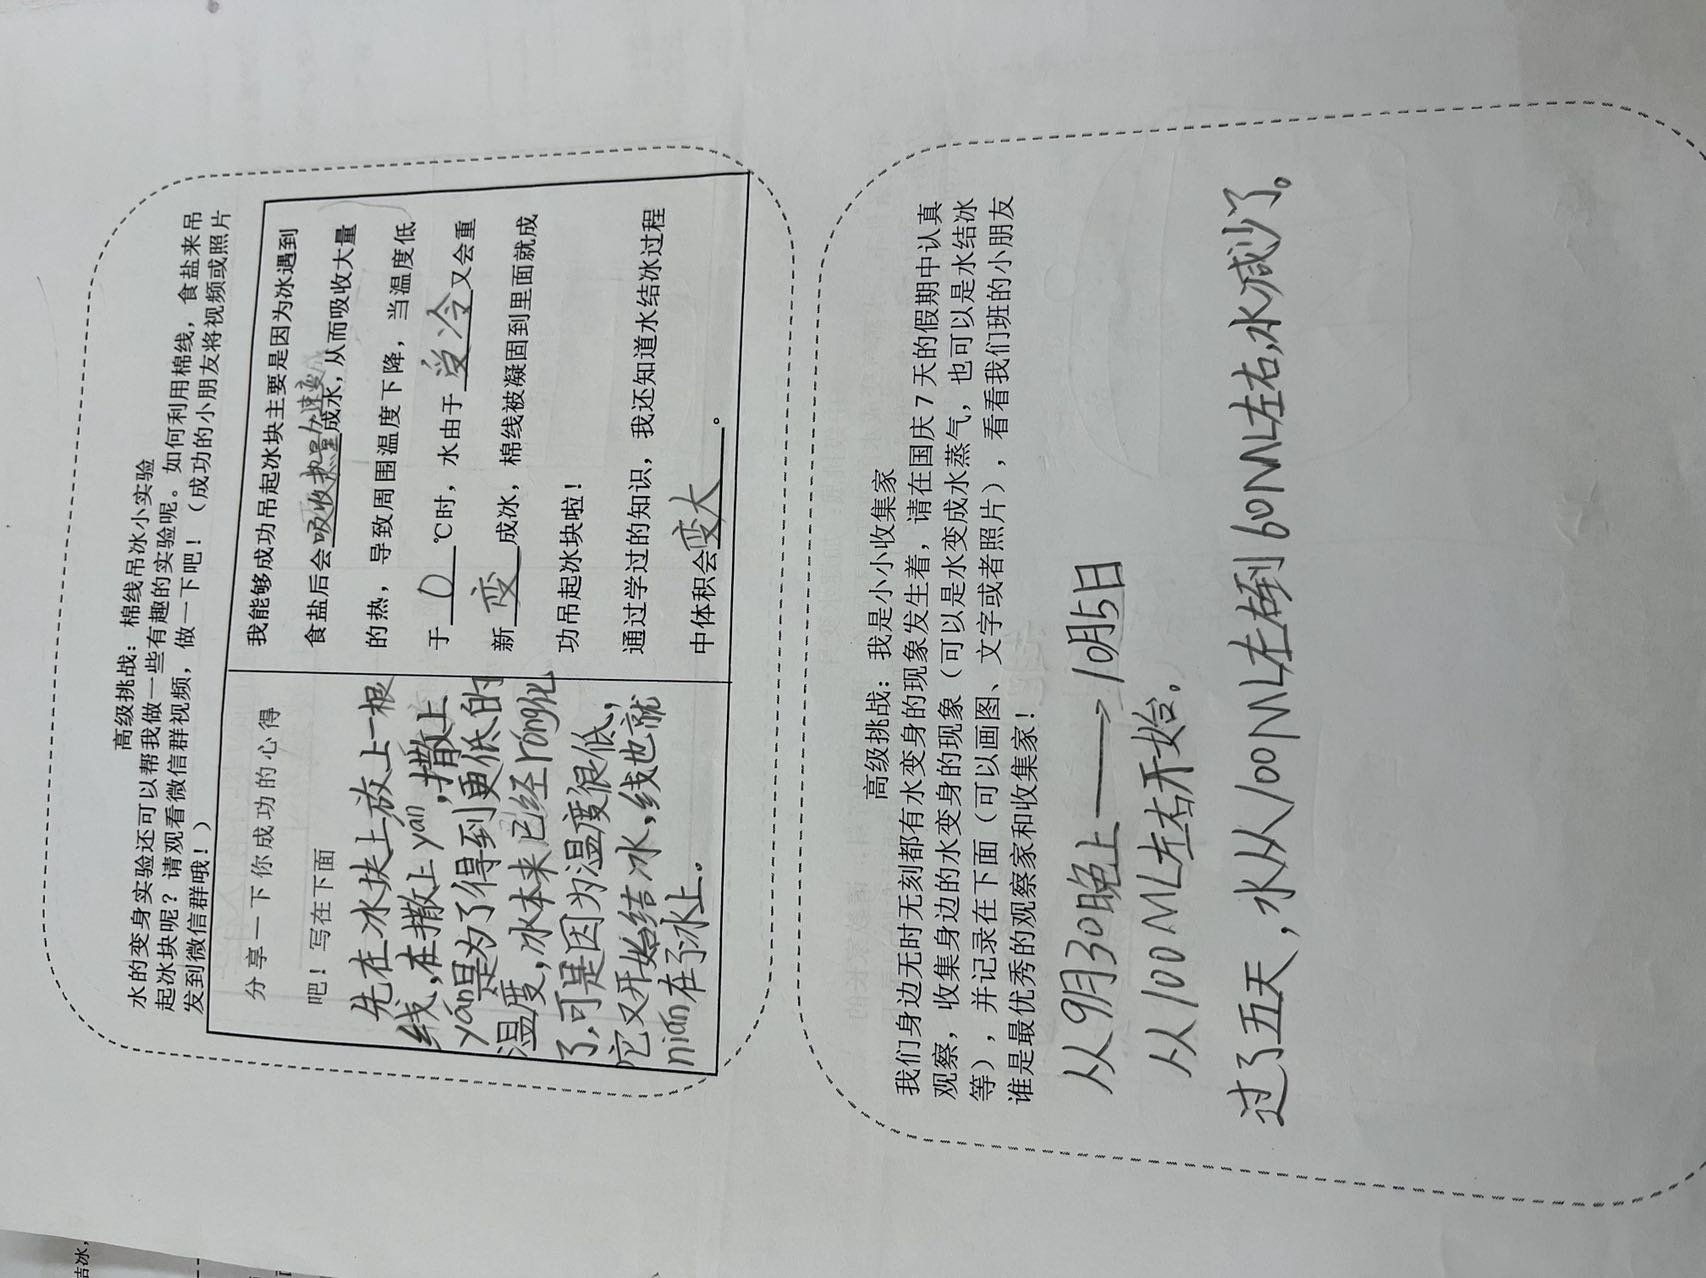 高级挑战：棉线吊冰小实验
水的变身实验还可以帮我做一些有趣的实验呢。如何利用棉线，食盐来吊
起冰块呢？请观看微信群视频，做一下吧！（成功的小朋友将视频或照片
发到微信群哦！）
分享一下你成功的心得
吧！写在下面
先在冰块上放上一根
线，在撒上yán，撒上
yán是为了得到更低的
温度，冰本来已经rónɡ化
了，可是因为温度很低，
它又开始结冰，线也就
nián在了冰上。
我能够成功吊起冰块主要是因为冰遇到
食盐后会吸收热量加速变成水，从而吸收大量
的热，导致周围温度下降，当温度低
于0℃时，水由于受冷又会重
新变成冰，棉线被凝固到里面就成
功吊起冰块啦！
通过学过的知识，我还知道水结冰过程
中体积会变大。
高级挑战：我是小小收集家
我们身边无时无刻都有水变身的现象发生着，请在国庆7天的假期中认真
观察，收集身边的水变身的现象（可以是水变成水蒸气，也可以是水结冰
等），并记录在下面（可以画图、文字或者照片），看看我们班的小朋友
谁是最优秀的观察家和收集家！
从9月30晚上——→10月5日
从100ML左右开始。
过了五天，水从100ML左右到60ML左右，水减少了。